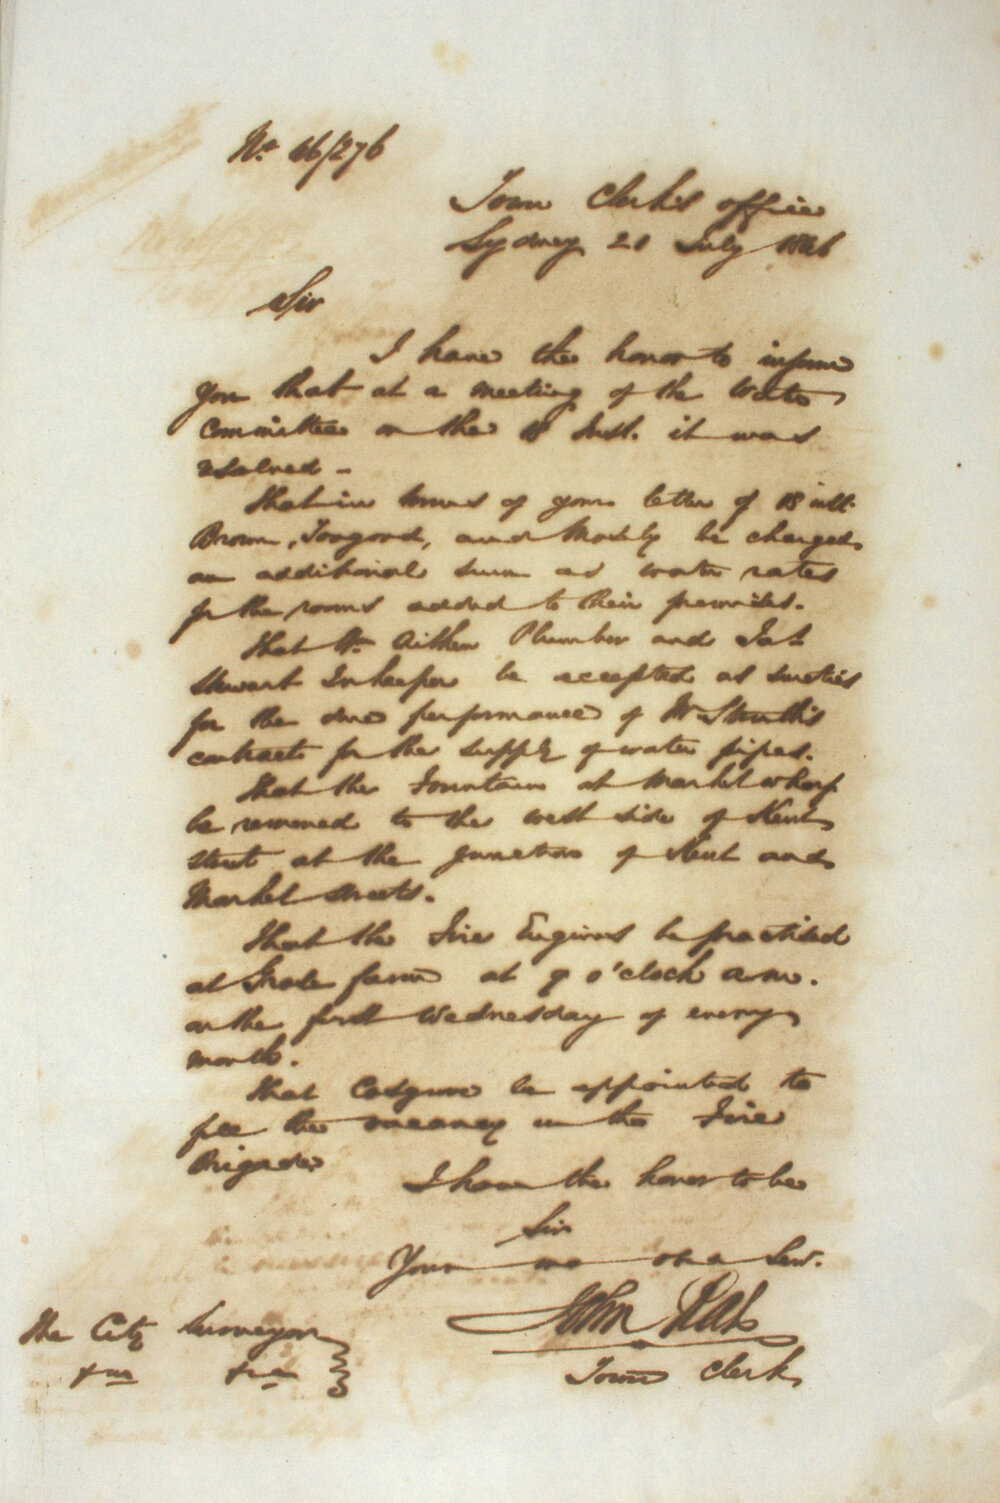 No 46/276
Town Clerk's office
Sydney 21 July 1846
Sir
I have the honor to inform
you that at a meeting of the Water
Committee on the 18 Inst. it was
resolved -
That in terms of your letter of 18 inst.
Brown, Toogood, and Mosely be charged
an additional sum as water rates
for the rooms added to their premises.
That Wm Aitken Plumber and Jas
Stewart Inkeeper be accepted as sureties
for the due performance of Mr Struth's
contract for the supply of water pipes.
That the Fountain at Market wharf
be removed to the west side of Kent
street at the junction of Kent and
Market streets.
That the Fire Engines be practised
at Grose farm at 9 o'clock a.m.
on the first Wednesday of every
month.
That Cosgrove be appointed to
fill the vacancy in the Fire
Brigade
I have the honor to be
Sir
Your mo obe Serv.
John Rae
Town Clerk
The City Surveyor